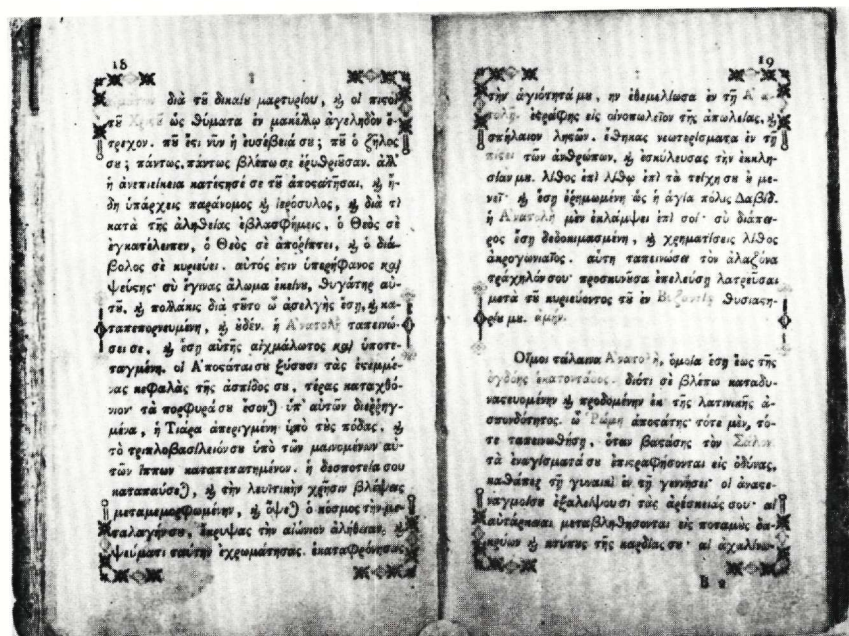 18
διὰ τȣ̃ δικαίυ μαρτυρίου, ϗ οἱ πιστοὶ
τȣ̃ ὡς θύματα ἐν μακέλῳ ἀγεληδὸν ἔ-
τρεχον. πȣ̃ ἔτι νῦν ἡ ευσέβειά σȣ; πȣ̃ ὁ ζῆλος
σȣ; πάντως, πάντως βλέπω σε ἐρυθριῶσαν. ἀλλ'
ἡ ἀνεπιείκεια κατέςησέ σε τȣ̃ ἀποςατῆσαι. ϗ ἤ-
δη ὑπάρχεις παράνομος ϗ ἱερόσυλος, ϗ διὰ τὶ
κατὰ τῆς ἀληθείας ἐβλασφήμεις, ὁ Θεὸς σὲ
ἐγκατέλειπεν, ὁ Θεὸς σὲ ἀπορίπτει, ϗ ὁ διά-
βολος σὲ κυριεύει. αὐτός ἐςιν ὑπερήφανος καὶ
ψεύςης· σὺ ἔγινας ἅλωμα ἐκείνȣ, θυγάτηρ αὐ-
τȣ̃. ϗ πολλάκις διὰ τȣ̃το ὦ ἀσελγὴς ἔσῃ, ϗ κα-
ταπεπορνευμένη, ϗ ȣ̓δέν. ἡ Ἀνατολὴ ταπεινώ-
σει σε, ϗ ἔσῃ αὐτῆς αἰχμάλωτος καὶ ὑποτε-
ταγμένη. οἱ Ἀποςάται σȣ ξύσουσι τὰς ἐςεμμέ-
νας κεφαλὰς τῆς ἀσπίδος σȣ, τέρας καταχθό-
νιον· τὰ πορφυρά σȣ ἔσονται ὑπ' αὐτῶν διεῤῥηγ-
μένα, ἡ Τιάρα ἀπεριγμένη ὑπὸ τȣ̀ς πόδας, ϗ
τὸ τριπλοβασίλειόν σȣ ὑπὸ τῶν μαινομένων αὐ-
τῶν ἵππων καταπεπατημένον. ἡ δεσποτεία σου
καταπαύσεται, ϗ τὴν λευϊτικὴν χρῆσιν βλέψεις
μεταμεμορφωμένην, ϗ ὄψεται ὁ κόσμος τὴν με-
ταλαγήν σȣ, ἔκρυψας τὴν αἰώνιον ἀλήθειαν, ϗ
ψεύματι ταύτην ἐχρωμάτησας. ἐκαταφρόνησας
19
τὴν ἁγιότητά μȣ, ην ἐθεμελίωσα ἐν τῇ Ἀνα-
τολῇ. ἐςράφης εἰς οἰνοπωλεῖον τῆς ἀπωλείας, ϗ
σπήλαιον λῃςῶν. ἔθηκας νεωτερίσματα ἐν τῇ
πίςει τῶν ἀνθρώπων, ϗ ἐσκύλευσας τὴν ἐκκλη-
σίαν μȣ. λίθος ἐπὶ λίθῳ ἐπὶ τὰ τείχη σȣ ȣ̓ με-
νεῖ· ϗ ἔσῃ ἐρημωμένη ὡς ἡ ἁγία πόλις Δαβίδ.
ἡ Ἀνατολὴ μὲν ἐκλάμψει ἐπὶ σοί· σὺ διάπυ-
ρος ἔσῃ δεδοκιμασμένη, ϗ χρηματίσεις λίθος
ἀκρογωνιαῖος. αὕτη ταπεινώσει τὸν ἀλαζόνα
τράχηλόν σου· προσκυνῆσαι ἐπελεύσῃ λατρεῦσαι
μετὰ τȣ̃ κυριεύοντος τȣ̃ ἐν Βυζαντίῳ θυσιαςη-
ρίȣ μȣ. ἀμήν.
Οἴμοι τάλαινα Ἀνατολὴ, ὁμοία ἔσῃ ἕως τῆς
ὀγδόης ἑκατοντάδος. διότι σὲ βλέπω καταδυ-
ναςευομένην ϗ προδομένην ἐκ τῆς λατινικῆς ἀ-
σπονδότητος. ὦ Ῥώμη ἀποςάτης· τότε μὲν, τό-
τε ταπεινωθήσῃ, ὅταν βαςάσῃς τὸν
τὰ ἐναγίσματά σȣ ἐπιςραφήσονται εἰς ὀδύνας,
καθάπερ τῇ γυναικὶ ἐν τῇ γεννήσει· οἱ ἀναςε-
ναγμοί σȣ ἐξαλείψουσι τὰς ἀρέσκειάς σου· αἱ
αὐτάρκειαι μεταβληθήσονται εἰς ποταμȣ̀ς δα-
κρύων ϗ κτύπȣς τῆς καρδίας σȣ· αἱ ἀχαλίνω-
B 2